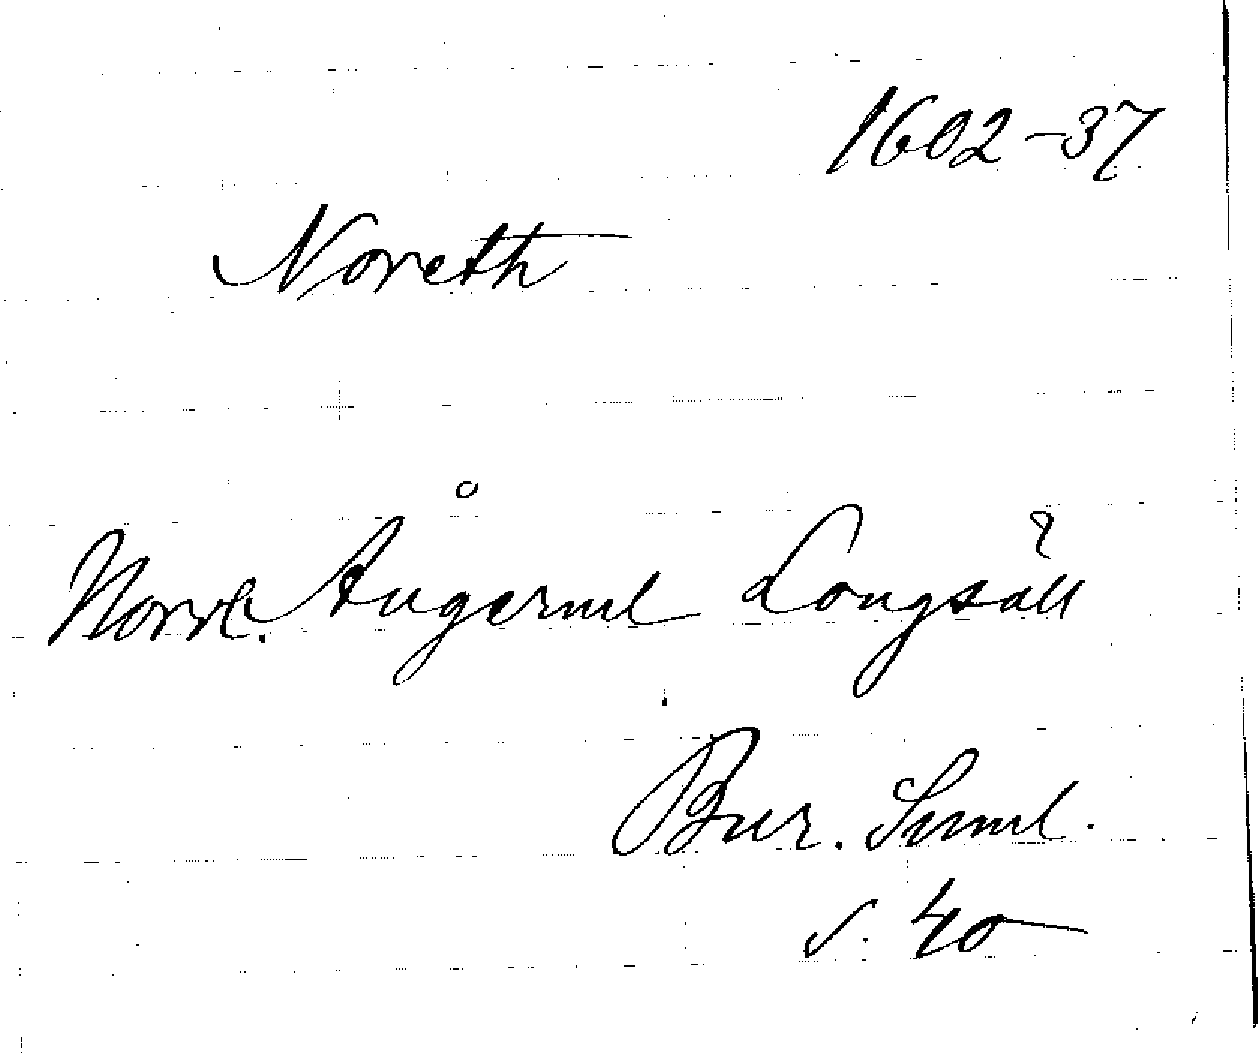 1602-37
Noreth
Norrl. Ångerml Longsäll
Bur. Suml.
s. 40